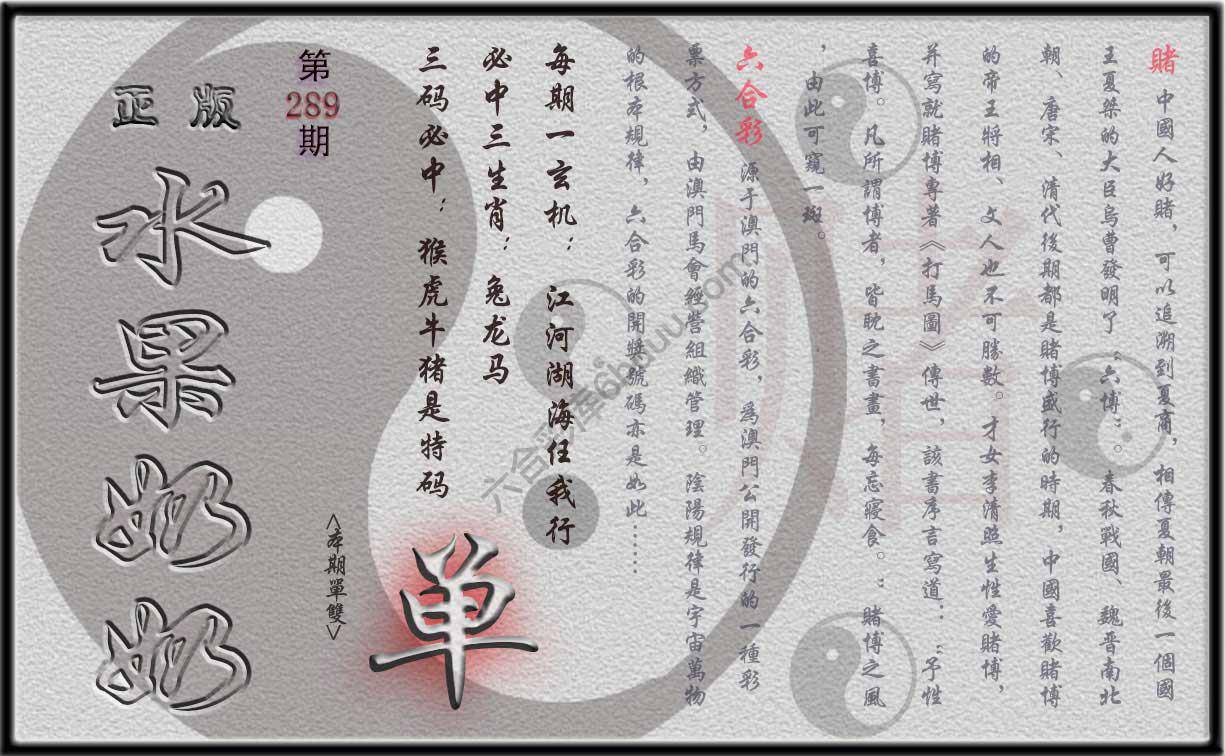 賭 中國人好賭，可以追溯到夏商，相傳夏朝最後一個國
王夏桀的大臣烏曹發明了“六博”。春秋戰國、魏晋南北
朝、唐宋、清代後期都是賭博盛行的時期，中國喜歡賭博
的帝王將相、文人也不可勝數。才女李清照生性愛賭博，
并寫就賭博專著《打馬圖》傳世，該書序言寫道：“予性
喜博。凡所謂博者，皆眈之書畫，每忘寢食。：賭博之風
，由此可窺一斑。
六合彩 源于澳門的六合彩，爲澳門公開發行的一種彩
票方式，由澳門馬會經營組織管理。陰陽規律是宇宙萬物
的根本規律，六合彩的開獎號碼亦是如此……
每期一玄机：江河湖海任我行
必中三生肖：兔龙马
三码必中：猴虎牛猪是特码
单
<本期單雙>
第
289
期
正版
水果奶奶
六合彩库6hduu.com